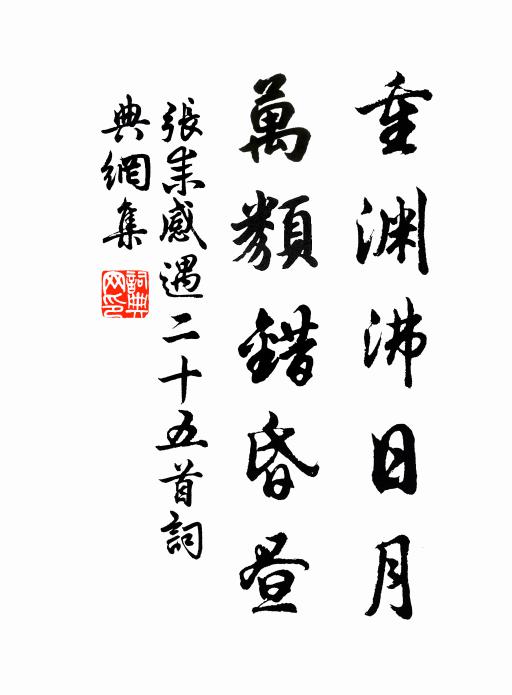 重淵沸日月
萬類錯昏昼
張耒感遇二十五首詞
典網集
詞典網印